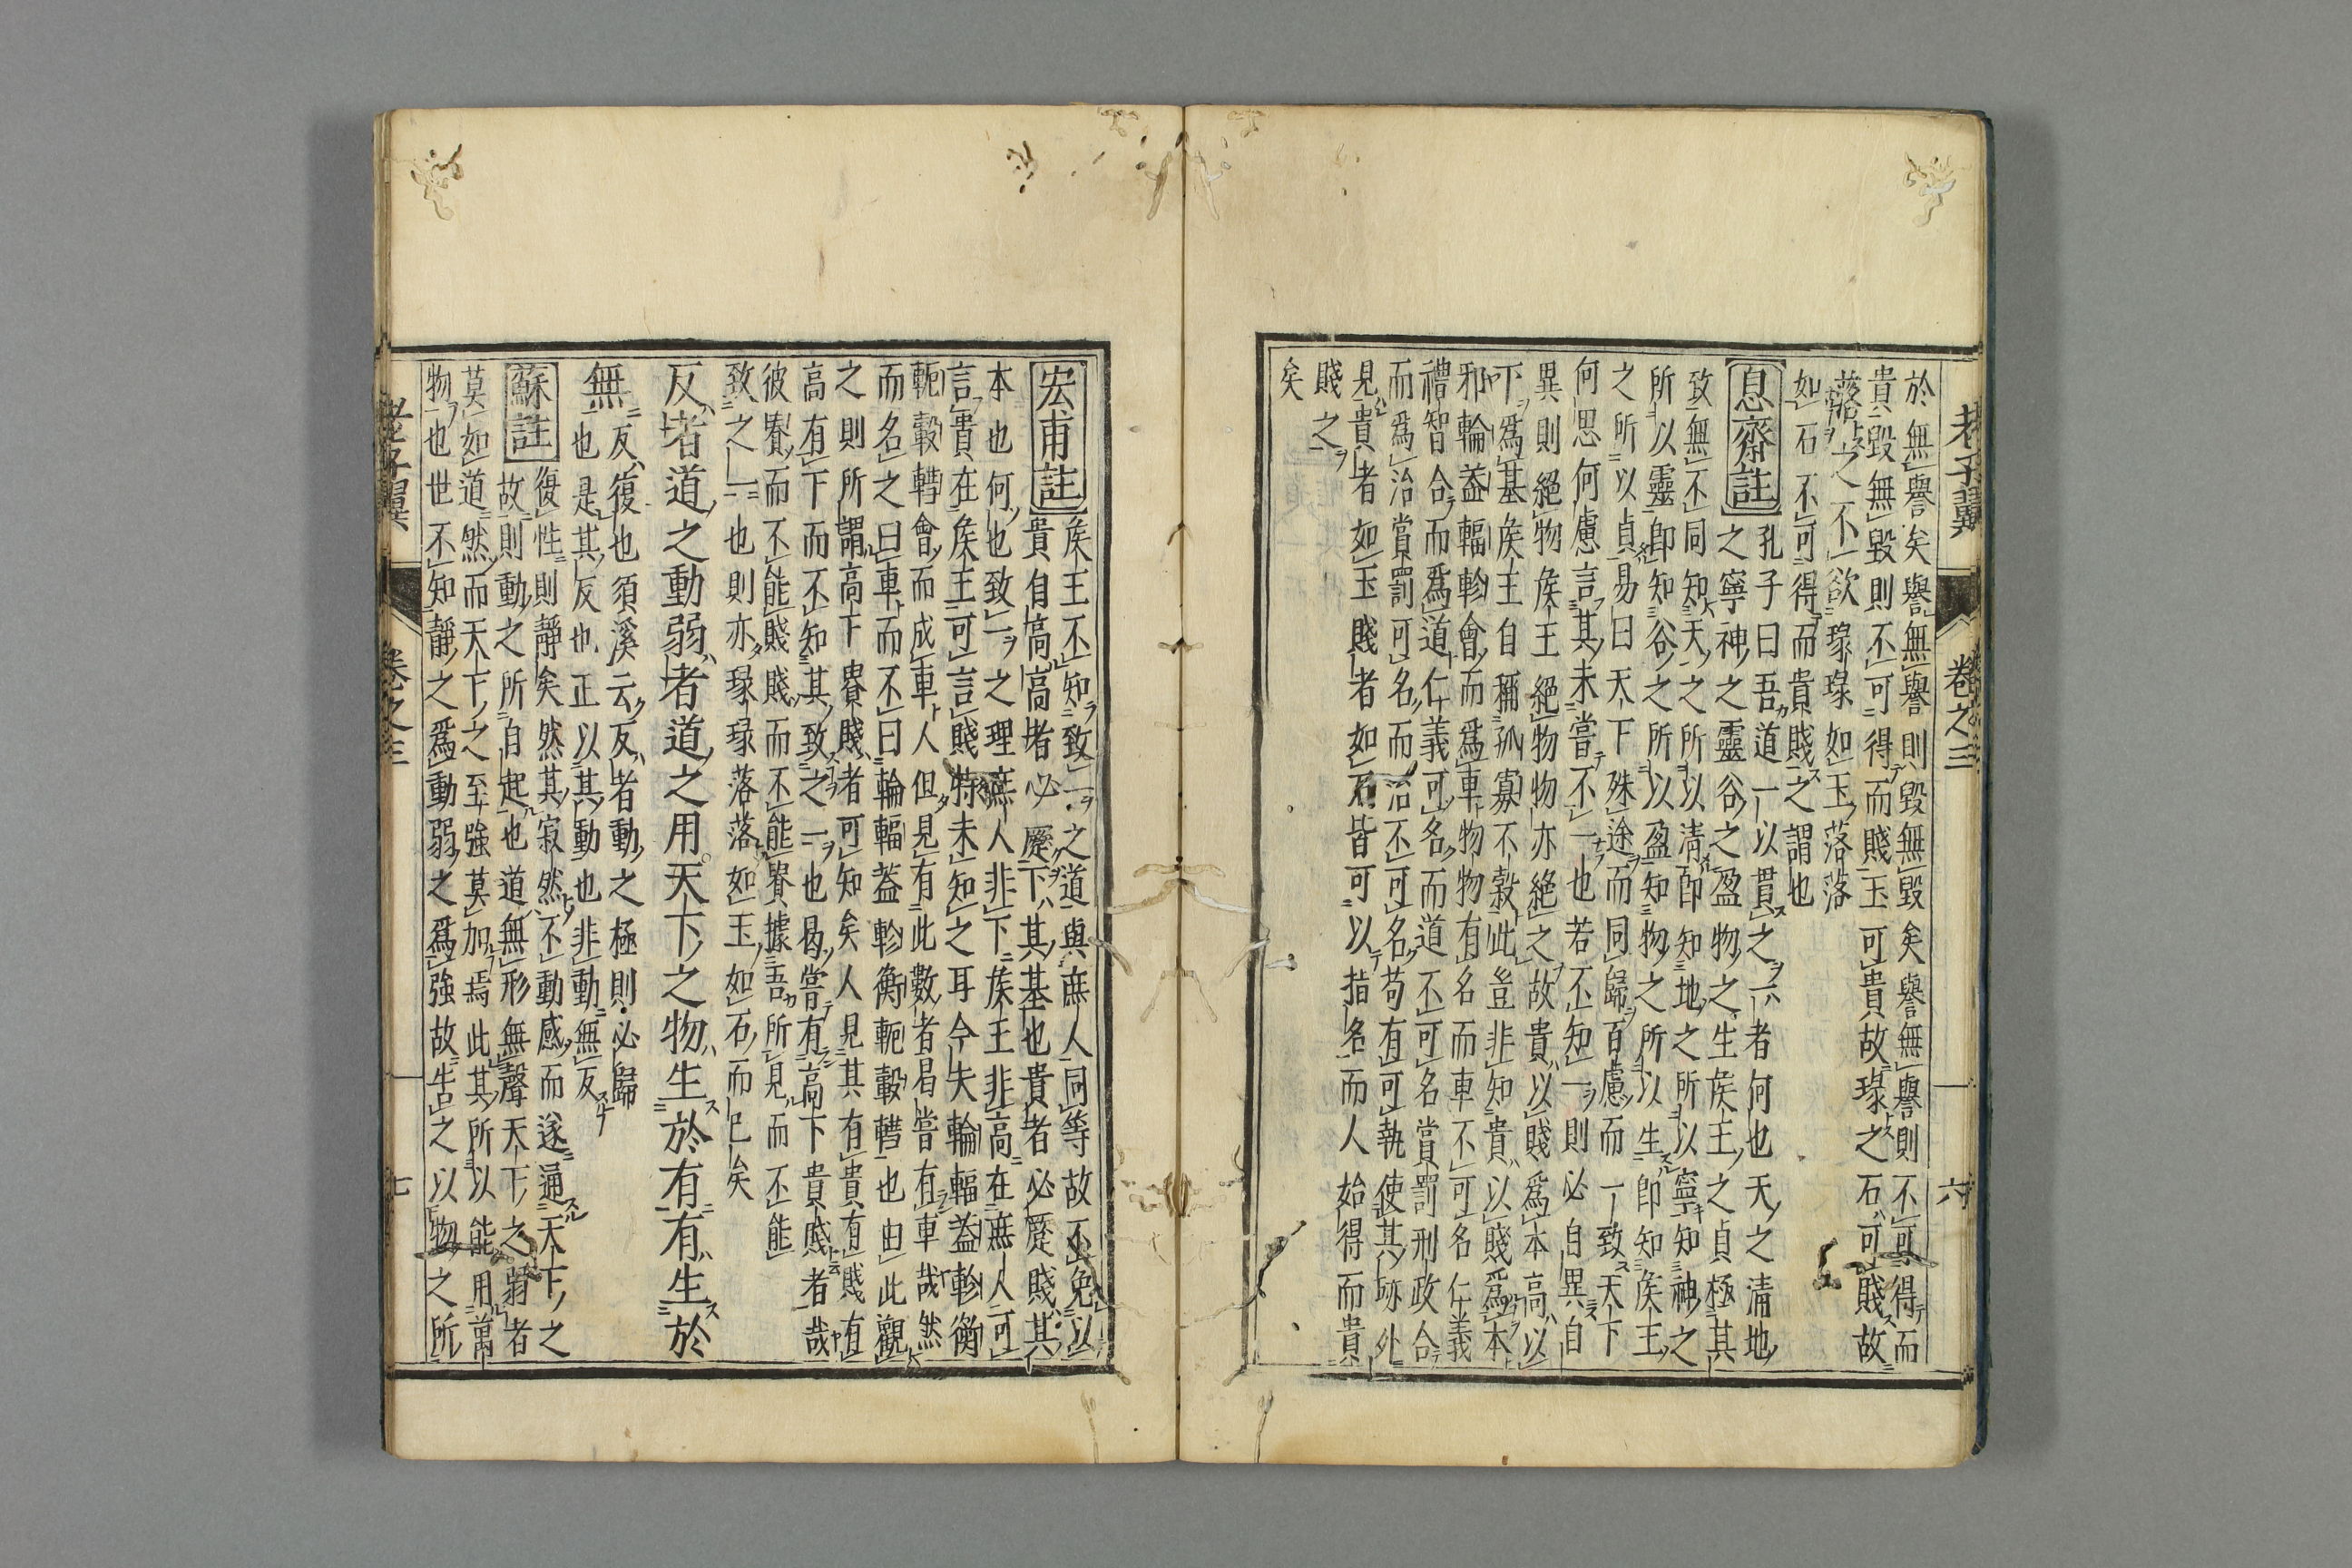 老子翼 卷之三 六
於無譽矣譽無譽則毀無毀矣譽無譽則不可得而
貴毀無毀則不可得而賤玉可貴故琭之石可賤故
落之不欲琭琭如玉落落
如石不可得而貴賤之謂也
息齋註
孔子曰吾道一以貫之一者何也天之淸地
之寧神之靈谷之盈物之生侯王之貞極其
致無不同知天之所以淸卽知地之所以寧知神之
所以靈卽知谷之所以盈知物之所以生卽知侯王
之所以貞易曰天下殊途而同歸百慮而一致天下
何思何慮言其未嘗不一也若不知一則必自異自
異則絕物侯王絕物物亦絕之故貴以賤爲本高以
下爲基侯王自稱孤寡不穀此豈非知貴以賤爲本
邪輪蓋輻軫會而爲車物物有名而車不可名仁義
禮智合而爲道仁義可名而道不可名賞罰刑政合
而爲治賞罰可名而治不可名苟有可執使其跡外
見貴者如玉賤者如石皆可以指名而人始得而貴
賤之
矣
宏甫註
侯王不知致一之道與庶人同等故不免以
貴自高高者必蹷下其基也貴者必蹷賤其
本也何也致一之理庶人非下侯王非高在庶人可
言貴在侯王可言賤特未知之耳今夫輪輻蓋軫衡
軛轂轊會而成車人但見有此數者曷嘗有車哉然
而名之曰車而不曰輪輻蓋軫衡軛轂轊也由此觀
之則所謂高下貴賤者可知矣人見其有貴有賤有
高有下而不知其致之一也曷嘗有高下貴賤者哉
彼貴而不能賤賤而不能貴據吾所見而不能
致之一也則亦琭琭落落如玉如石而已矣
反者道之動弱者道之用天下之物生於有有生於
無
反復也須溪云反者動之極則必歸
也是其反也正以其動也非動無反
蘇註
復性則靜矣然其寂然不動感而遂通天下之
故則動之所自起也道無形無聲天下之弱者
莫如道然而天下之至強莫加焉此其所以能用萬
物也世不知靜之爲動弱之爲強故告之以物之所
老子翼 卷之三 七